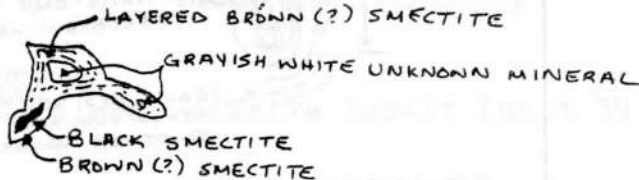 LAYERED BROWN (?) SMECTITE
GRAYISH WHITE UNKNOWN MINERAL
BLACK SMECTITE
BROWN (?) SMECTITE